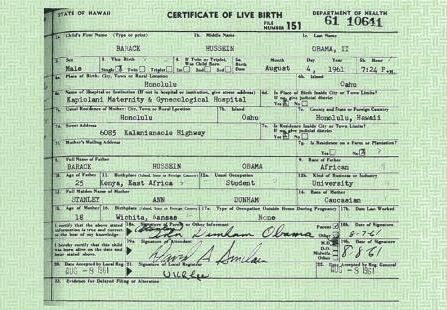 STATE OF HAWAII
CERTIFICATE OF LIVE BIRTH
DEPARTMENT OF HEALTH
FILE NUMBER 151
61 10641
1a. Child's First Name (Type or print)
1b. Middle Name
1c. Last Name
BARACK
HUSSEIN
OBAMA, II
2. Sex
3. This Birth
4. If Twin or Triplet, Was Child Born
5a. Birth Date
Month
Day
Year
5b. Hour
Male
Single
Twin
Triplet
1st
2nd
3rd
August
4, 1961
7:24 P.M.
6a. Place of Birth: City, Town or Rural Location
6b. Island
Honolulu
Oahu
6c. Name of Hospital or Institution (If not in hospital or institution, give street address)
6d. Is Place of Birth Inside City or Town Limits?
If no, give judicial district
Kapiolani Maternity & Gynecological Hospital
Yes
No
7a. Usual Residence of Mother: City, Town or Rural Location
7b. Island
7c. County and State or Foreign Country
Honolulu
Oahu
Honolulu, Hawaii
7d. Street Address
7e. Is Residence Inside City or Town Limits?
If no, give judicial district
6085 Kalanianaole Highway
Yes
No
7f. Mother's Mailing Address
7g. Is Residence on a Farm or Plantation?
Yes
No
8. Full Name of Father
9. Race of Father
BARACK
HUSSEIN
OBAMA
African
10. Age of Father
11. Birthplace (Island, State or Foreign Country)
12a. Usual Occupation
12b. Kind of Business or Industry
25
Kenya, East Africa
Student
University
13. Full Maiden Name of Mother
14. Race of Mother
STANLEY
ANN
DUNHAM
Caucasian
15. Age of Mother
16. Birthplace (Island, State or Foreign Country)
17a. Type of Occupation Outside Home During Pregnancy
17b. Date Last Worked
18
Wichita, Kansas
None
I certify that the above stated information is true and correct to the best of my knowledge.
18a. Signature of Parent or Other Informant
Parent
Other
18b. Date of Signature
Ann Dunham Obama
8-7-61
I hereby certify that this child was born alive on the date and hour stated above.
19a. Signature of Attendant
M.D.
D.O.
Midwife
Other
19b. Date of Signature
David A Sinclair
8-8-61
20. Date Accepted by Local Reg.
21. Signature of Local Registrar
22. Date Accepted by Reg. General
AUG -8 1961
UKLee
AUG -8 1961
23. Evidence for Delayed Filing or Alteration